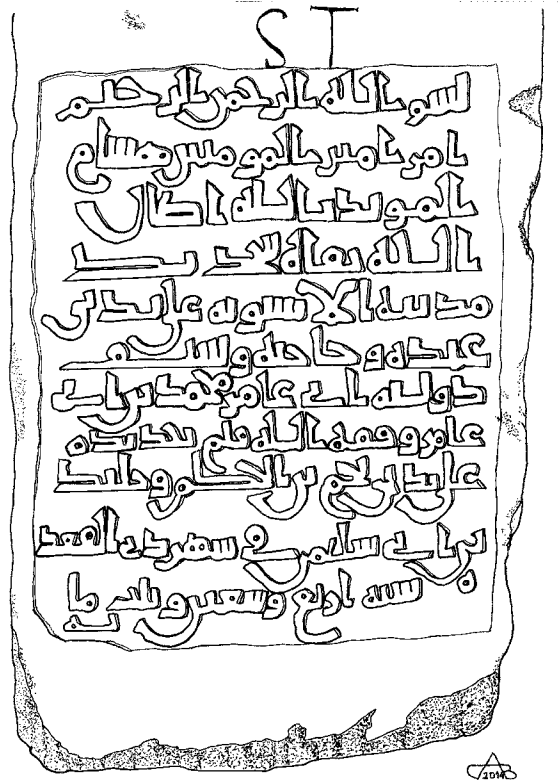 S T
بسم الله الرحمن الرحيم
امر امير المومنين هشام
المويد بالله اطال
الله بقاه
مدينة الاشبونة على يدي
عبده وحاجبه وسيف
دولته ابي عامر محمد بن ابي
عامر وفقه الله فتم
بن الحكم
بن ابي سليمن في شهر ذي القعدة
سنة اربع وسبعين وثلث مائة
2014